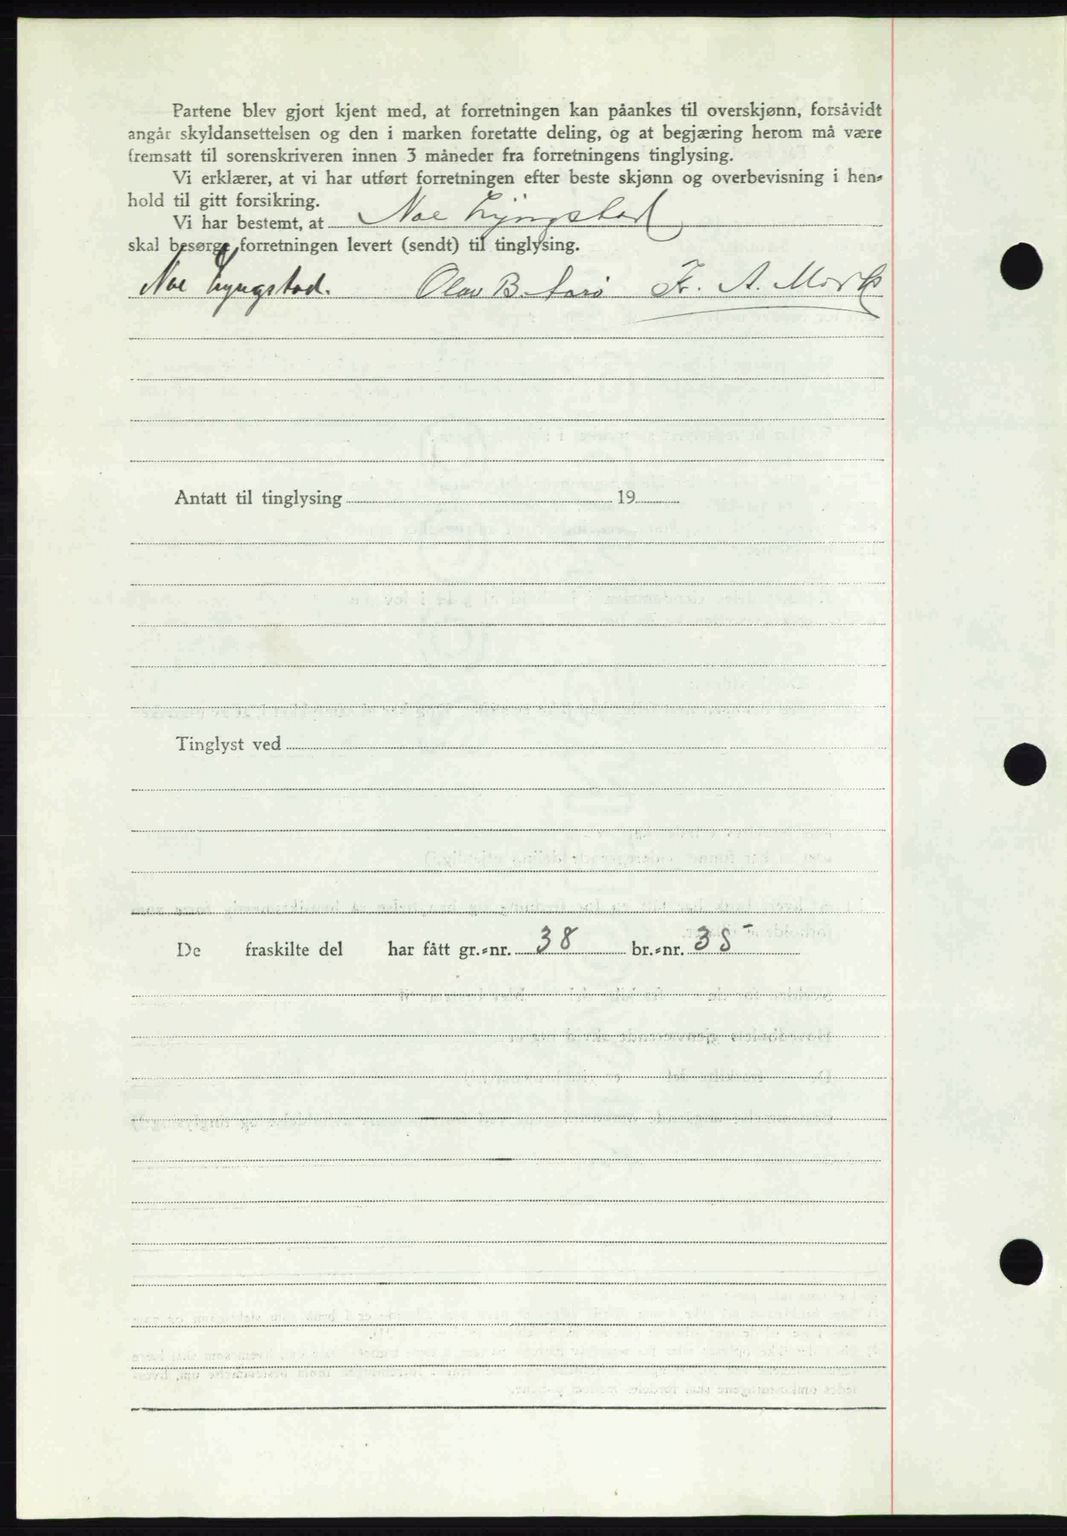 Partene blev gjort kjent med, at forretningen kan påankes til overskjønn, forsåvidt
angår skyldansettelsen og den i marken foretatte deling, og at begjæring herom må være
fremsatt til sorenskriveren innen 3 måneder fra forretningens tinglysing.
Vi erklærer, at vi har utført forretningen efter beste skjønn og overbevisning i hen-
hold til gitt forsikring.
Vi har bestemt, at Noe Lyngstad
skal besørge forretningen levert (sendt) til tinglysing.
Noe Lyngstad. Olav B. F. A. Mork
Antatt til tinglysing 19
Tinglyst ved
De fraskilte del har fått gr.-nr. 38 br.-nr. 35